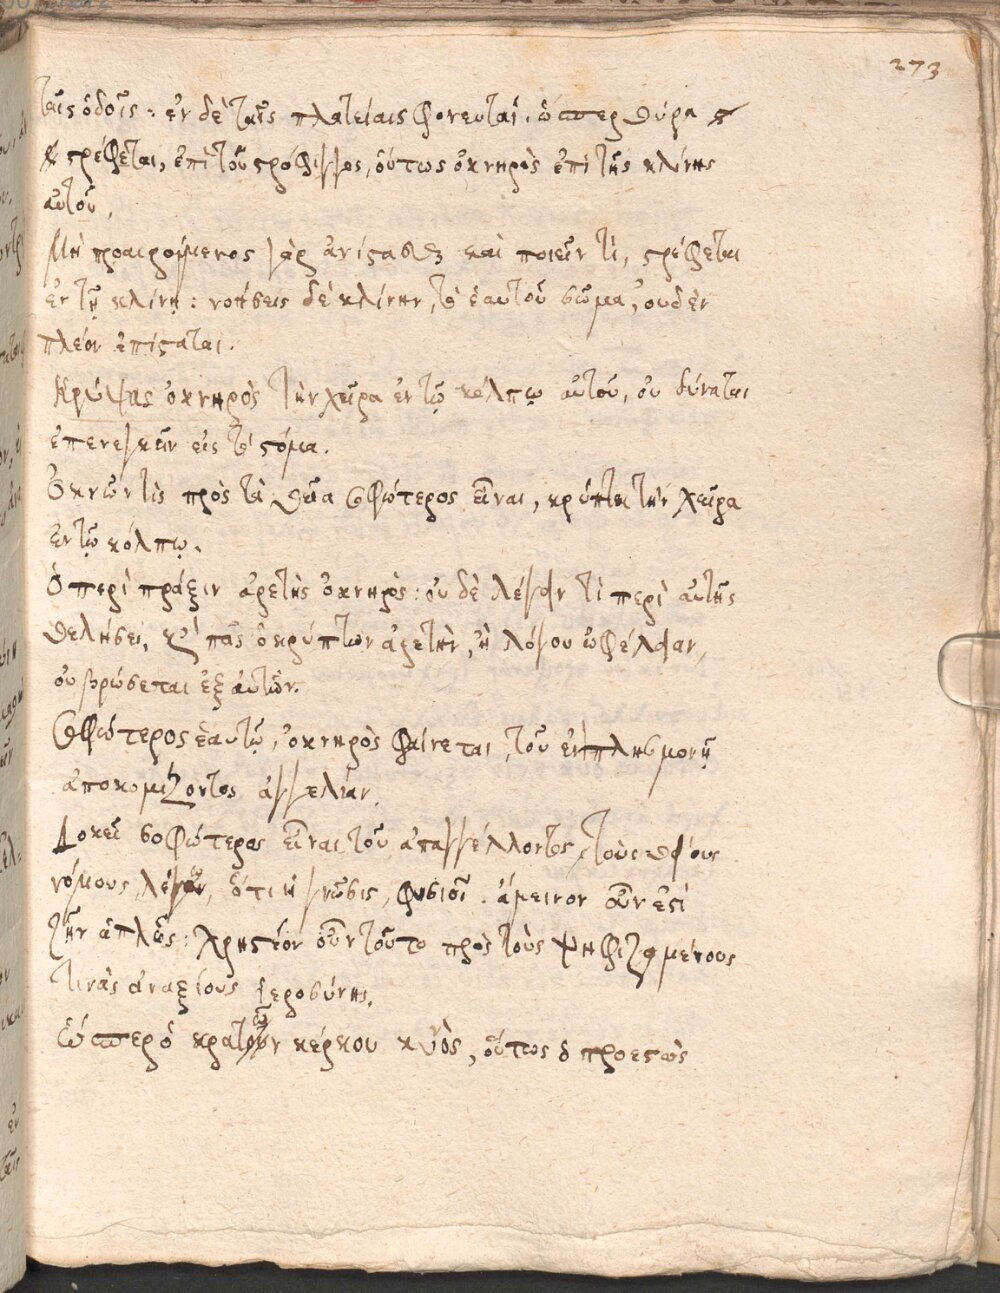 273
ταῖς ὁδοῖς : ἐν δὲ ταῖς πλατείαις φονευταί. ὥσπερ θύρα
στρέφεται, ἐπὶ τοῦ στρόφιγγος, οὕτως ὀκνηρὸς ἐπὶ τῆς κλίνης
αὐτοῦ.
Μὴ προαιρούμενος γὰρ ἀνίστασθαι καὶ ποιεῖν τὶ, στρέφεται
ἐν τῇ κλίνῃ : νοήσεις δὲ κλίνην, τὸ ἑαυτοῦ σῶμα, οὐδὲν
πλέον ἐπίσταται.
Κρύψας ὀκνηρὸς τὴν χεῖρα ἐν τῷ κόλπῳ αὐτοῦ, οὐ δύναται
ἐπενεγκεῖν εἰς τὸ στόμα.
Ὀκνῶν τὶς πρὸς τὰ θεῖα σοφώτερος εἶναι, κρύπτει τὴν χεῖρα
ἐν τῷ κόλπῳ.
Ὁ περὶ πράξιν ἀρετῆς ὀκνηρὸς : οὐ δὲ λέγειν τὶ περὶ αὐτῆς
θελήσει, καὶ πᾶς ὁ κρύπτων ἀρετὴν, ἢ λόγου ὠφέλειαν,
οὐ βρώσεται ἐξ αὐτῶν.
Σοφώτερος ἑαυτῷ, ὀκνηρὸς φαίνεται, τοῦ ἐν πλησμονῇ
ἀποκομίζοντος ἀγγελίαν.
Δοκεῖ σοφώτερος εἶναι τοῦ ἀπαγγέλλοντος τοὺς θείους
νόμους, λέγων, ὅτι ἡ γνῶσις, φυσιοῖ. ἄμεινον οὖν ἐστί
ζῆν ἁπλῶς : χρηστέον οὖν τοῦτο πρὸς τοὺς ψηφιζομένους
τινὰς ἀναξίους ἱεροσύνης.
Ὥσπερ ὁ κρατῶν κέρκου κυνὸς, οὕτως ὁ προεστὼς